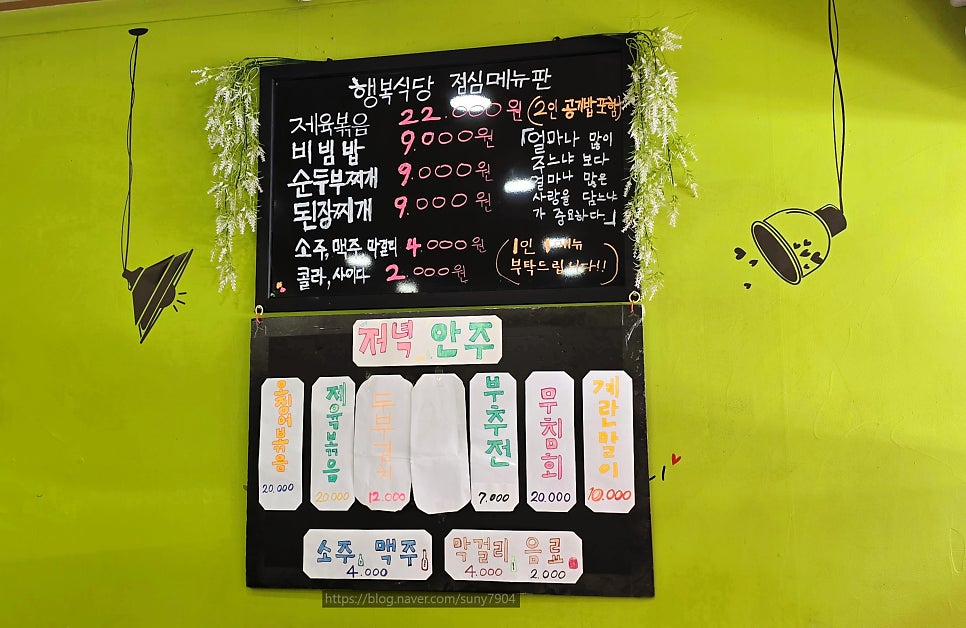 행복식당 점심메뉴판
제육볶음 22.000원 (2인 공기밥포함)
비빔밥 9.000원
순두부찌개 9.000원
된장찌개 9.000원
「얼마나 많이
주느냐 보다
얼마나 많은
사랑을 담느냐
가 중요하다」
소주, 맥주, 막걸리 4.000원
콜라, 사이다 2.000원
(1인 1메뉴
부탁드립니다!!)
저녁 안주
오징어볶음 20,000
제육볶음 20,000
두부김치 12.000
부추전 7.000
무침회 20,000
계란말이 10.000
소주, 맥주
4.000
막걸리 음료
4.000 2.000
https://blog.naver.com/suny7904